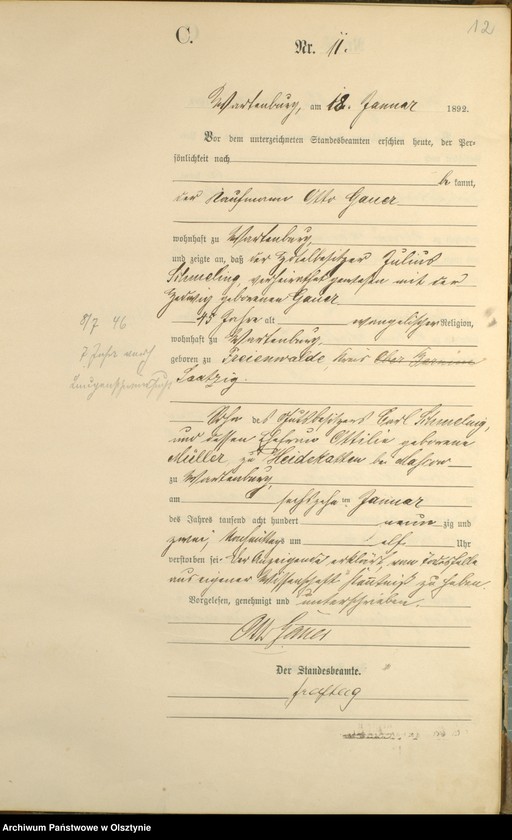 12
C.
Nr. 11.
Wartenburg, am 18. Januar 1892.
Vor dem unterzeichneten Standesbeamten erschien heute, der Per-
sönlichkeit nach
be kannt,
der Kaufmann Otto Gauer
wohnhaft zu Wartenburg,
und zeigte an, daß der Hotelbesitzer Julius
Schmeling, verheirathet gewesen mit der
Hedwig geborenen Gauer
45 Jahre alt, evangelischer Religion,
wohnhaft zu Wartenburg,
geboren zu Freienwalde, Kreis
Saatzig.
8/7 46
7 Jahr
Sohn des Gutsbesitzers Carl Schmeling,
und dessen Ehefrau Ottilie geborene
Müller, zu Heidekathen bei
zu Wartenburg,
am sechszehn ten Januar
des Jahres tausend acht hundert neun zig und
zwei, Vormittags um elf Uhr
verstorben sei. Der Anzeigende erklärt, vom Todesfalle
aus eigener Wissenschaft Kenntniß zu haben.
Vorgelesen, genehmigt und unterschrieben.
Otto Gauer
Der Standesbeamte.
Archiwum Państwowe w Olsztynie